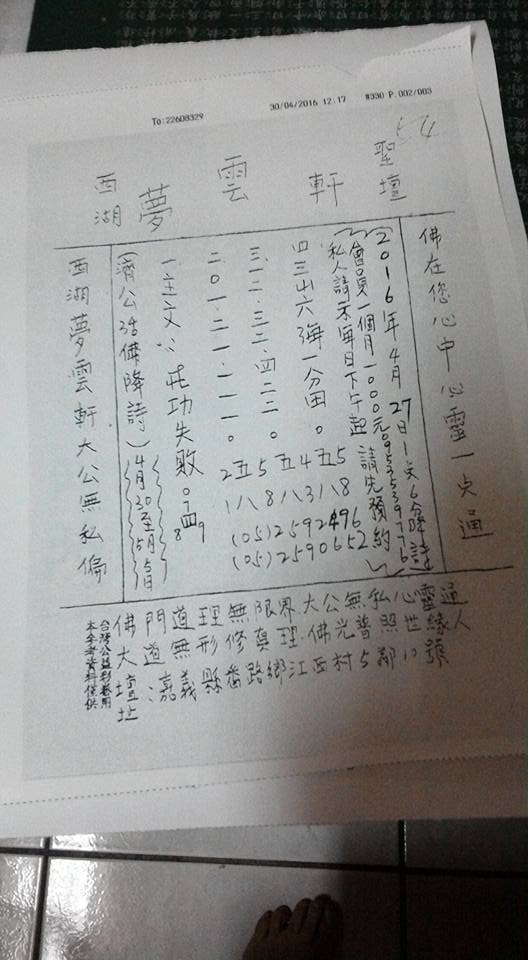 To:22608329 30/04/2016 12:17 #330 P.002/003
54
聖壇
軒
雲
夢
西湖
佛在您心中心靈一点通
(2016年4月27日
會員一個月一000元
請先預約
私人請示每日下午起
四三出六海一分田。
三一二.三二.四二二。
二.0一.二一.二一一。
一主文:.莊功失敗。
(濟公活佛降詩)
4月30至5月5日
五4五5
八3八8
2五5
1八8
(05)2592496
(05)2590652
西湖夢雲軒大公無私偏
佛門道理無限界大公無私心靈通
大道無形修真理.佛光普照世緣人
壇址:嘉義縣番路鄉江西村5鄰10號
本參考資料僅供
台灣公益彩卷用